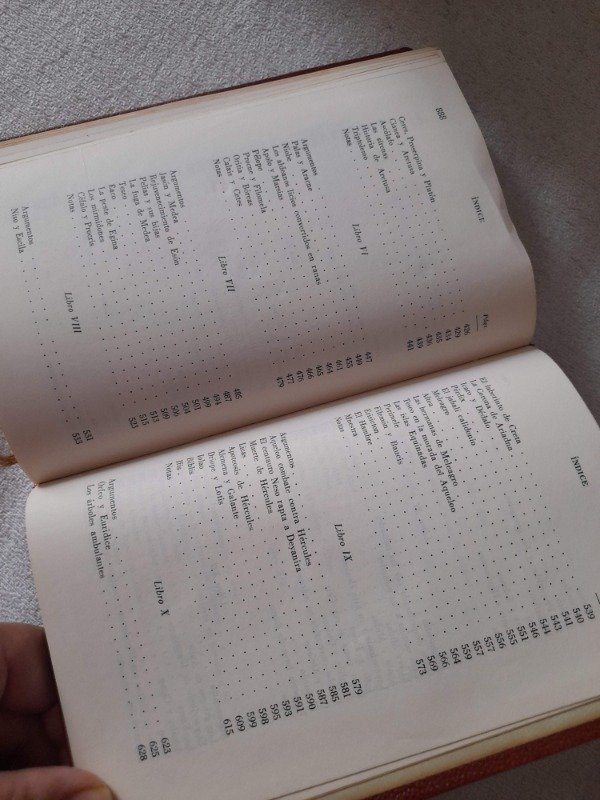 888 ÍNDICE
Págs.
Ceres, Proserpina y Plutón 426
Cianea y Aretusa 429
Ascálafo 434
Las sirenas 435
Historia de Aretusa 436
Triptolemo 439
Notas 441
Libro VI
Argumentos 447
Palas y Aracne 449
Níobe 455
Los aldeanos licios convertidos en ranas 461
Apolo y Marsias 464
Pélope y Filomela 465
Procne y Bóreas 466
Oritia 476
Calais y Cetes 477
Notas 479
Libro VII
Argumentos 485
Jasón y Medea 487
Rejuvenecimiento de Esón 494
Pelias y sus hijas 499
La fuga de Medea 501
Teseo 504
Eaco 506
La peste de Egina 509
Los mirmidones 513
Céfalo y Procris 515
Notas 523
Libro VIII
Argumentos 531
Niso y Escila 533
ÍNDICE
El laberinto de Creta 539
La Corona de Ariadna 540
Ícaro y Dédalo 541
Pérdiz 543
El jabalí calidonio 544
Meleagro 546
Altea 551
Las hermanas de Meleagro 555
en la morada del Aqueloo 556
Las islas Equinadas 557
Perimele 557
Filemón y Baucis 559
Eresictón 564
El Hambre 566
Mestra 569
Notas 573
Libro IX
Argumentos 579
Aqueloo combate contra Hércules 581
El centauro Neso rapta a Deyanira 585
Muerte de Hércules 587
Licas 590
Apoteosis de Hércules 591
Alcmena y Galante 593
Dríope y Lotis 595
Iolao 598
Biblis 599
Ifis 609
Notas 615
Libro X
Argumentos 623
Orfeo y Eurídice 625
Los árboles ambulantes 628